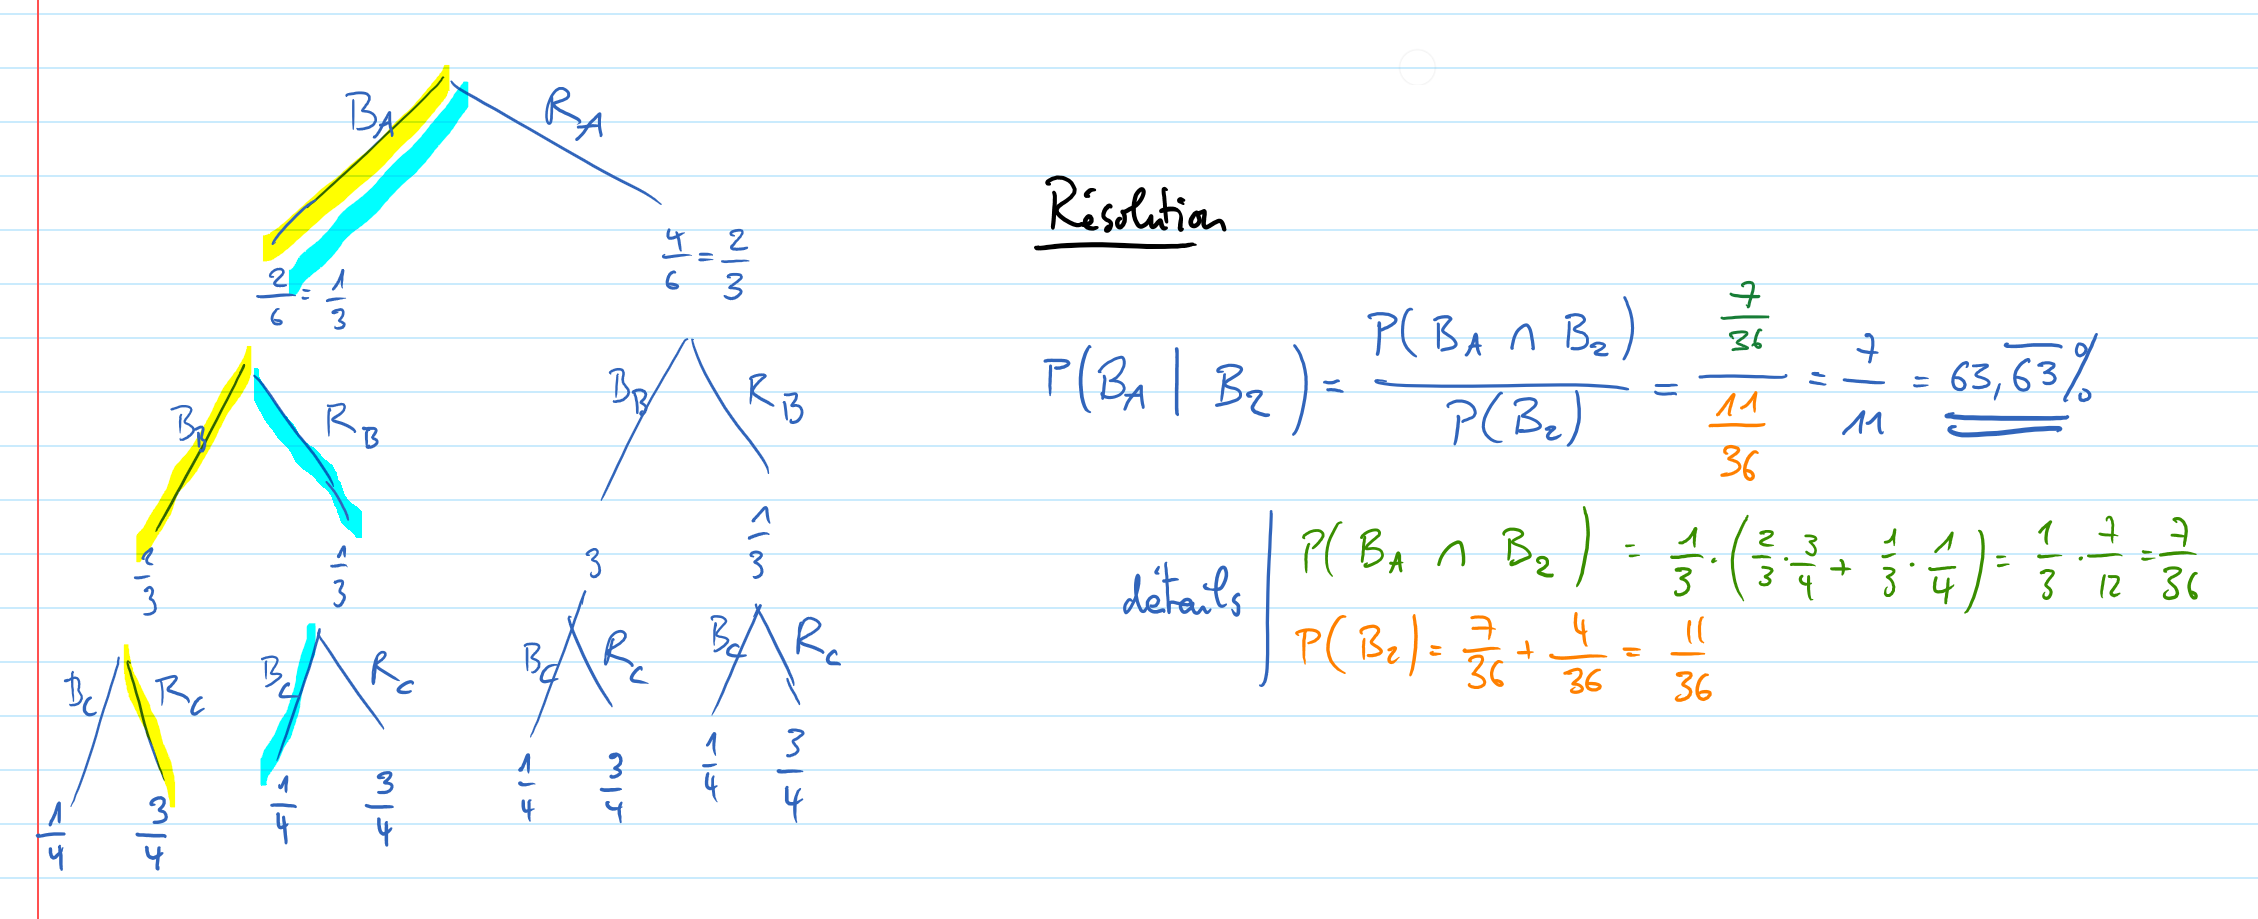 B_A R_A
2/6 = 1/3
4/6 = 2/3
B_B R_B
B_B R_B
2/3 1/3
3 1/3
B_C R_C
B_C R_C
B_C R_C
B_C R_C
1/4 3/4
1/4 3/4
1/4 3/4
1/4 3/4
Résolution
P(B_A | B_2) = P(B_A ∩ B_2) / P(B_2) = (7/36) / (11/36) = 7/11 = 63,6̅3̅%
détails
P(B_A ∩ B_2) = 1/3 · (2/3 · 3/4 + 1/3 · 1/4) = 1/3 · 7/12 = 7/36
P(B_2) = 7/36 + 4/36 = 11/36